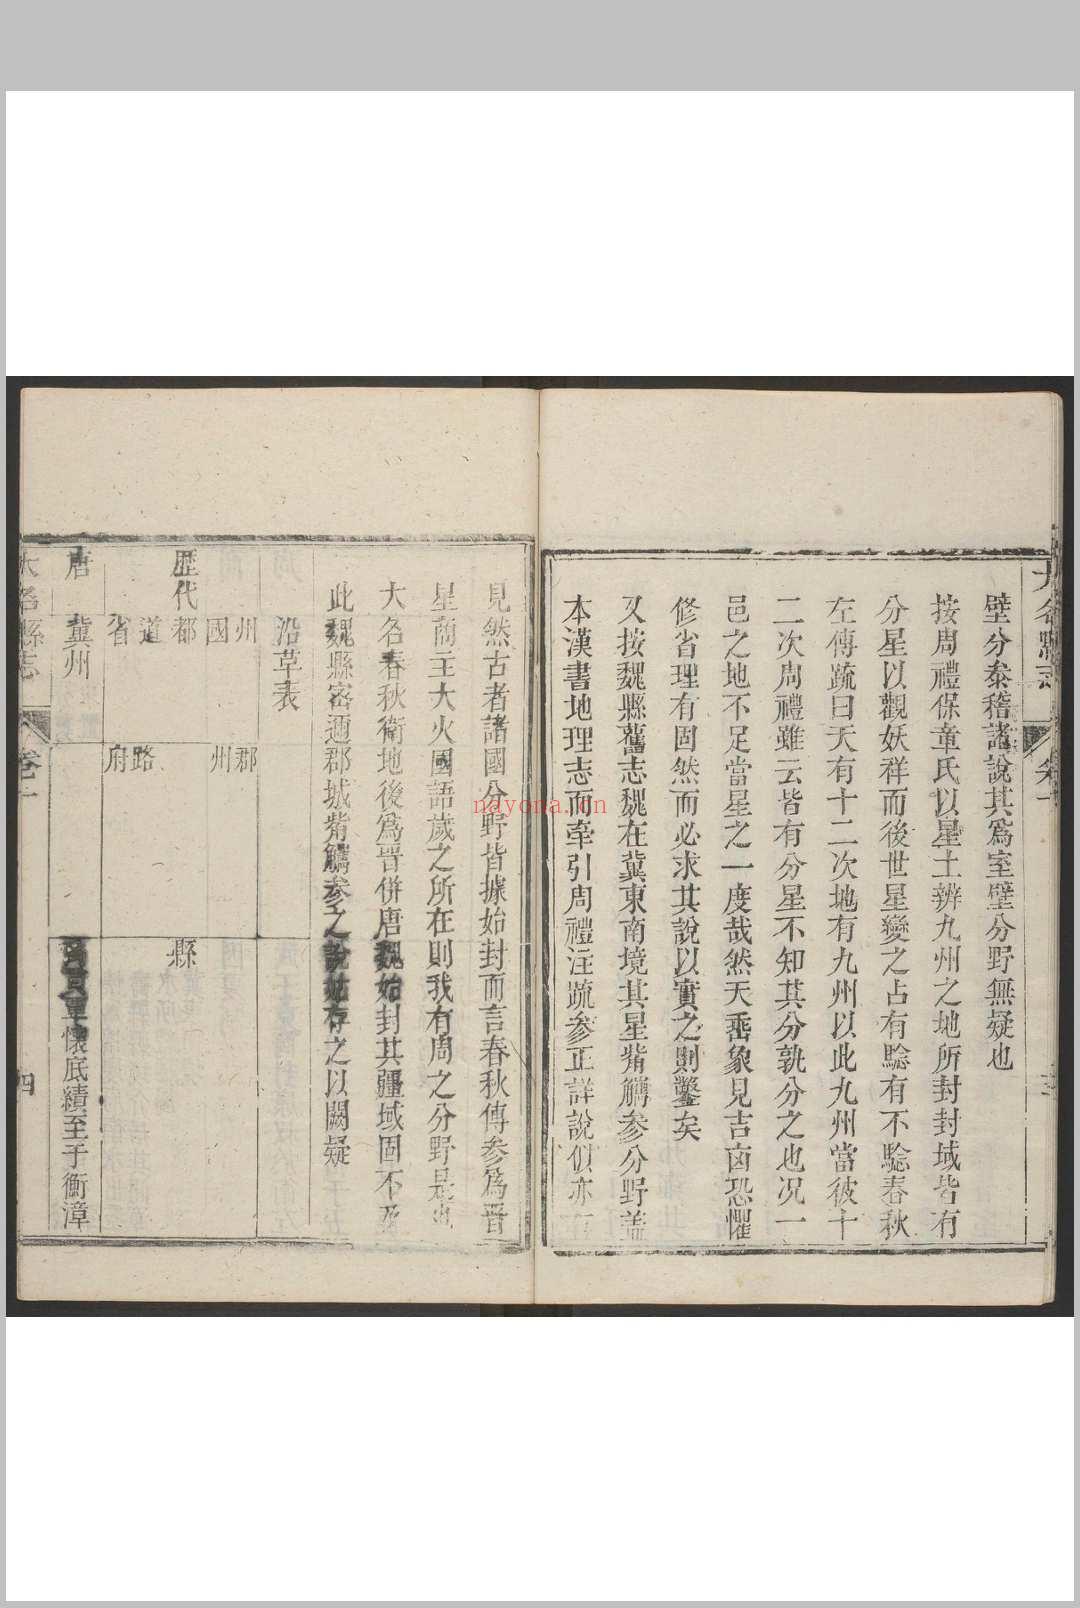 大名縣志
卷一
三
壁分泰稽諸說其為室壁分野無疑也
按周禮保章氏以星土辨九州之地所封封域皆有
分星以觀妖祥而後世星變之占有驗有不驗春秋
左傳疏曰天有十二次地有九州以此九州當彼十
二次周禮雖云皆有分星不知其分孰分之也况一
邑之地不足當星之一度哉然天垂象見吉凶恐懼
修省理有固然而必求其說以實之則鑿矣
又按魏縣舊志魏在冀東南境其星觜觿参分野蓋
本漢書地理志而牽引周禮注疏参正詳說似亦有
見然古者諸國分野皆據始封而言春秋傳参為晉
星商主大火國語歲之所在則我有周之分野是也
大名春秋衛地後為晉併唐魏始封其疆域固不及
此魏縣密邇郡城觜觿参之說姑存之以闕疑
沿革表
歷代
州
國
都
道
省
郡
州
路
府
縣
唐
冀州
禹貢覃懷底績至于衡漳
大名縣志
卷一
四
nayona.cn